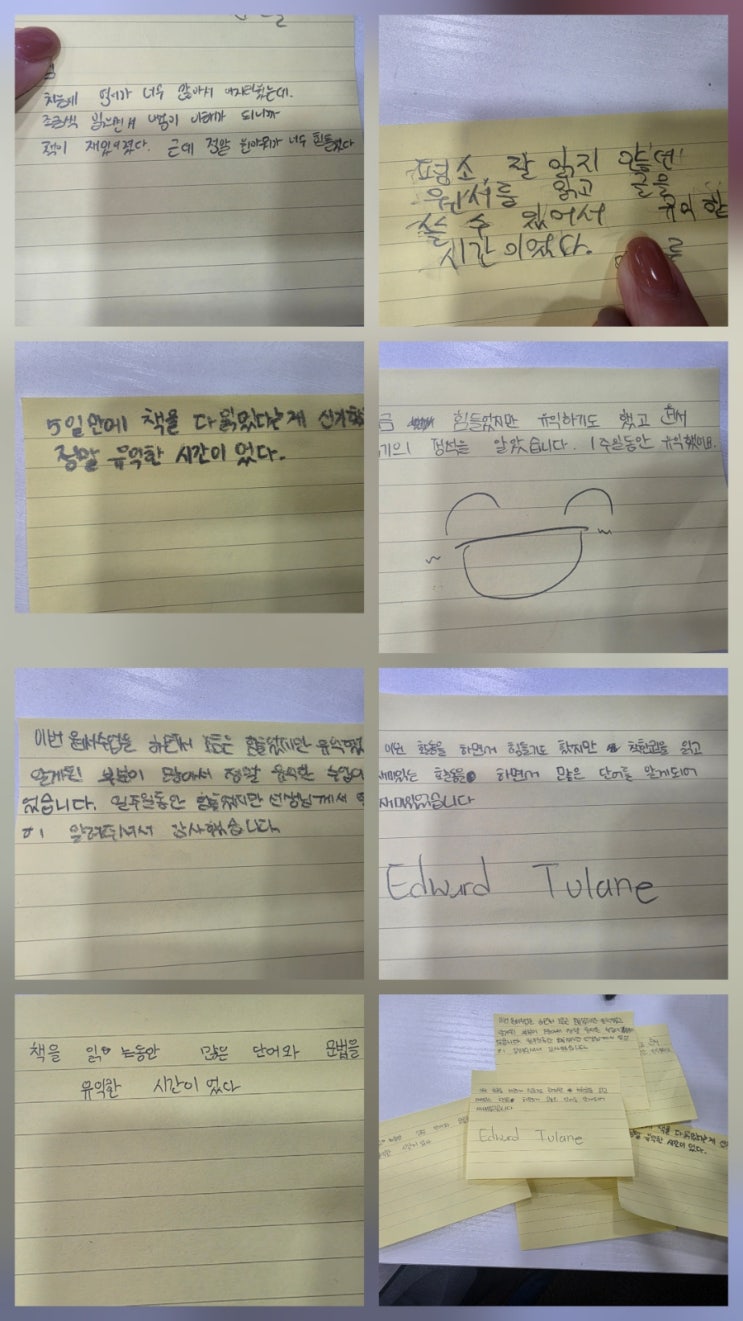 처음에 단어가 너무 많아서 어지러웠는데.
조금씩 읽으면서 내용이 이해가 되니까
책이 재밌어졌다. 근데 정말 원어위가 너무 힘들었다
평소 잘 읽지 않던
원서를 읽고 글을
쓸 수 있어서 유익한
시간이었다.
5일안에 책을 다 읽었다는게 신기하
정말 유익한 시간이 었다.
금 힘들었지만 유익하기도 했고 원서
기의 정석을 알았습니다. 1주일동안 유익했어요.
이번 원서수업을 하면서 조금은 힘들었지만 유익했
알게된 부분이 많아서 정말 유익한 수업이
었습니다. 일주일동안 힘들었지만 선생님께서
히 알려주셔서 감사했습니다
이번 활동을 하면서 힘들기도 했지만 책한권을 읽고
재미있는 활동을 하면서 많은 단어를 알게되어
재미있었습니다
Edward Tulane
책을 읽 는동안 많은 단어와 문법을
유익한 시간이 었다
Edward Tulane